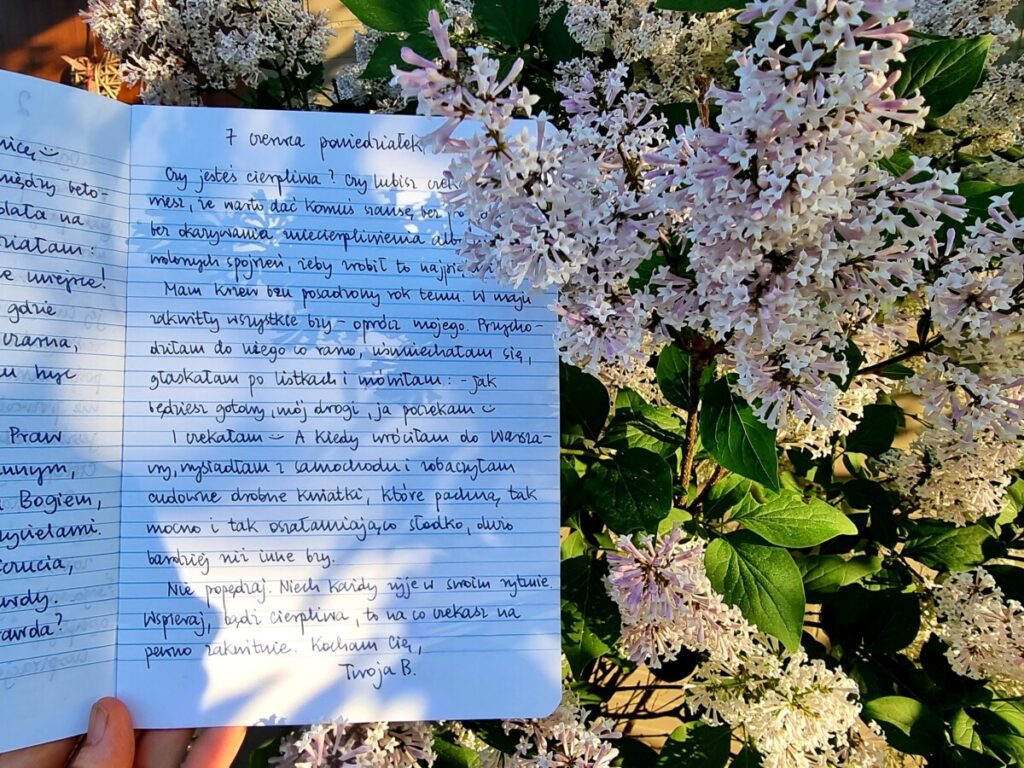 2
między beto-
na
miejsce!
gdzie
czarna,
być
Praw
Bogiem,
7 czerwca poniedziałek
Czy jesteś cierpliwa? Czy lubisz
wiesz, że warto dać komuś szansę, bez
bez okazywania zniecierpliwienia
spojrzeń, żeby zrobił to
Mam krzew bzu posadzony rok temu. W maju
zakwitły wszystkie bzy – oprócz mojego. Przycho-
dziłam do niego co rano, uśmiechałam się,
głaskałam po listkach i mówiłam: – jak
będziesz gotowy, mój drogi, ja poczekam :)
I czekałam :) A kiedy wróciłam do Warsza-
wy, wysiadłam z samochodu i zobaczyłam
cudowne drobne kwiatki, które pachną tak
mocno i tak oszałamiająco słodko, dużo
bardziej niż inne bzy.
Nie popędzaj. Niech każdy żyje w swoim rytmie.
Wspieraj, bądź cierpliwa, to na co czekasz na
pewno zakwitnie. Kocham Cię,
Twoja B.